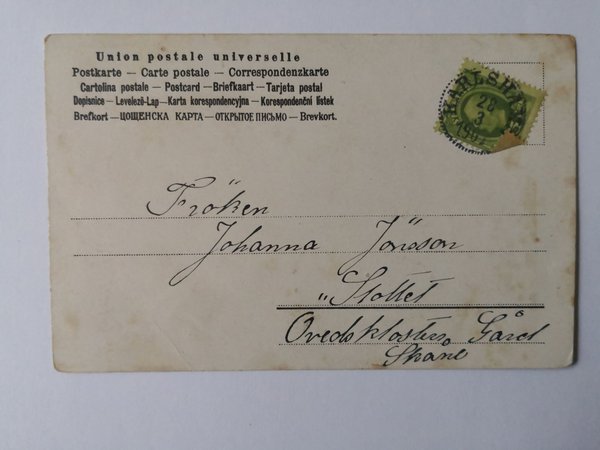 Union postale universelle
Postkarte — Carte postale — Correspondenzkarte
Cartolina postale — Postcard — Briefkaart — Tarjeta postal
Dopisnice — Levelező-Lap — Karta korespondencyjna — Korespondenční listek
Brefkort — ЦОЩЕНСКА КАРТА — ОТКРЫТОЕ ПИСЬМО — Brevkort.
KARLSHAMN
28
3
Fröken
Johanna Jönsson
"Slottet
Ovedskloster Gård
Skåne